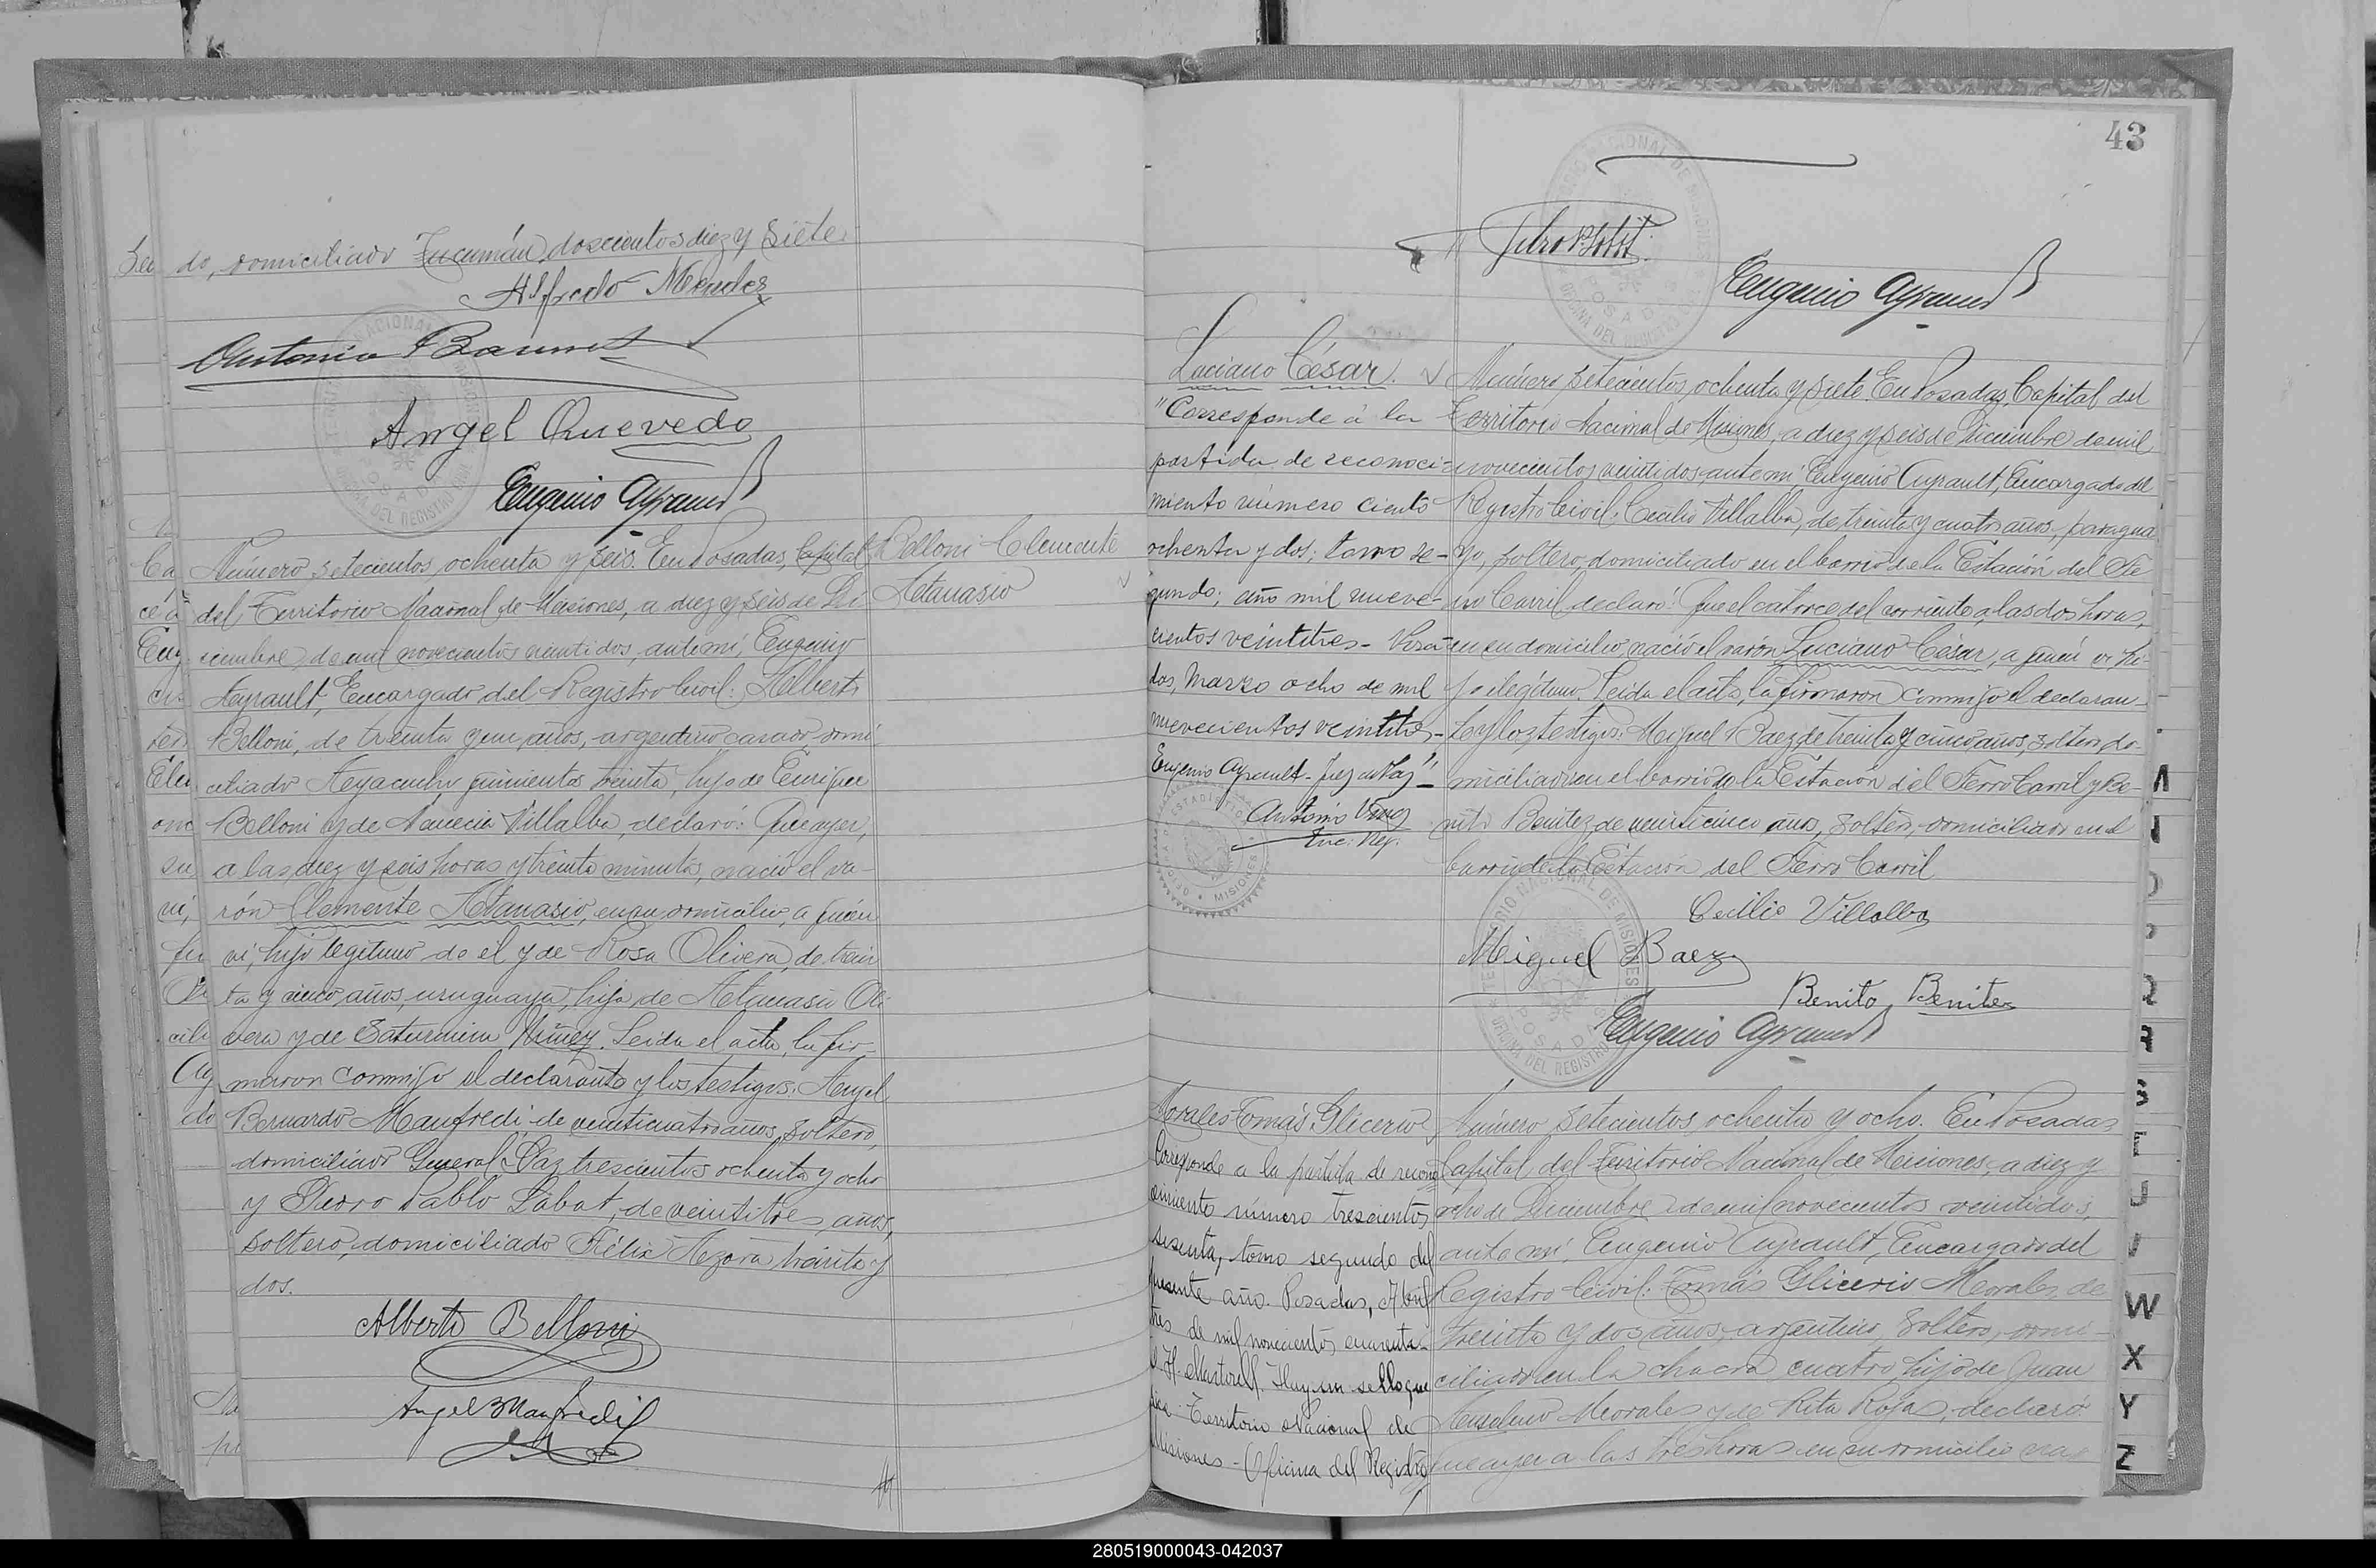 do, domiciliado Tucumán, doscientos diez y siete.
Alfredo Mendez
Antonio
Angel Quevedo
Eugenio Ayrault
Belloni Clemente
Atanasio
Número setecientos ochenta y seis. En Posadas, Capital
del Territorio Nacional de Misiones, a diez y seis de Di-
ciembre de mil novecientos veintidos, ante mí, Eugenio
Ayrault, Encargado del Registro Civil: Alberto
Belloni, de treinta y un años, argentino casado, domi-
ciliado Ayacucho quinientos treinta, hijo de Enrique
Belloni y de Villalba, declaró: Que ayer,
a las diez y seis horas y treinta minutos, nació el va-
rón Clemente Atanasio, en su domicilio, a quien
ví, hijo legítimo de él y de Rosa Olivera, de trein
ta y cinco años, uruguaya, hija de Atanasio Oli
vera y de Saturnina Nuñez. Leida el acta, la fir-
maron conmigo el declarante y los testigos: Angel
Bernardo Manfredi de veinticuatro años, soltero,
domiciliado General Paz trescientos ochenta y ocho
y Pedro Pablo Labat, de veintitres años,
soltero, domiciliado Félix Azara treinta y
dos.
Alberto Belloni
Angel B Manfredi
43
Eugenio Ayrault
Luciano César.
"Corresponde á la
partida de reconoci-
miento número ciento
ochenta y dos; tomo se-
gundo; año mil nueve-
cientos veintitres - Posa-
das, Marzo ocho de mil
novecientos veintitres -
Eugenio Ayrault - Juez de Paz" -
Antonio
Enc. Reg.
Número setecientos ochenta y siete. En Posadas, Capital del
Territorio Nacional de Misiones, a diez y seis de Diciembre de mil
novecientos veintidos, ante mí, Eugenio Ayrault, Encargado del
Registro Civil: Cecilio Villalba, de treinta y cuatro años, paragua
yo, soltero, domiciliado en el barrio de la Estación del Fe
rro Carril, declaró: Que el catorce del corriente, a las dos horas,
en su domicilio, nació el varón Luciano César, a quien ví, hi-
jo ilegítimo. Leida el acta, la firmaron conmigo el declaran-
te y los testigos: Miguel Baez, de treinta y cinco años, soltero, do-
miciliado en el barrio de la Estación del Ferro Carril y Be-
nito Benitez, de veinticinco años, soltero, domiciliado en el
barrio de la Estación del Ferro Carril
Cecilio Villalba
Miguel Baez
Benito Benitez
Eugenio Ayrault
Morales Tomás Glicerio
Corresponde a la partida de recono-
cimiento número trescientos
sesenta, tomo segundo del
presente año. Posadas, Abril
tres de mil novecientos cuarenta.
Hay un sello que
dice: Territorio Nacional de
Misiones - Oficina del Registro
Número setecientos ochenta y ocho. En Posadas
Capital del Territorio Nacional de Misiones, a diez y
ocho de Diciembre de mil novecientos veintidos,
ante mí, Eugenio Ayrault, Encargado del
Registro Civil: Tomás Glicerio Morales, de
treinta y dos años, argentino, soltero, domi-
ciliado en la chacra cuatro, hijo de Juan
Anselmo Morales y de Rita Rojas, declaró:
Que ayer a las tres horas en su domicilio na-
W
X
Y
Z
280519000043-042037